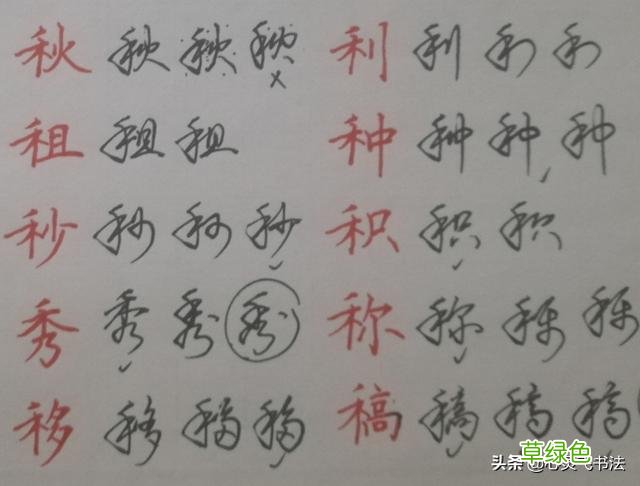 秋 秋 秋 秋 利 利 利 利
租 租 租 种 种 种 种
秒 秒 秒 秒 积 积 积
秀 秀 秀 秀 称 称 称 称
移 移 移 移 稿 稿 稿 稿
草绿色
头条 @心灵飞书法